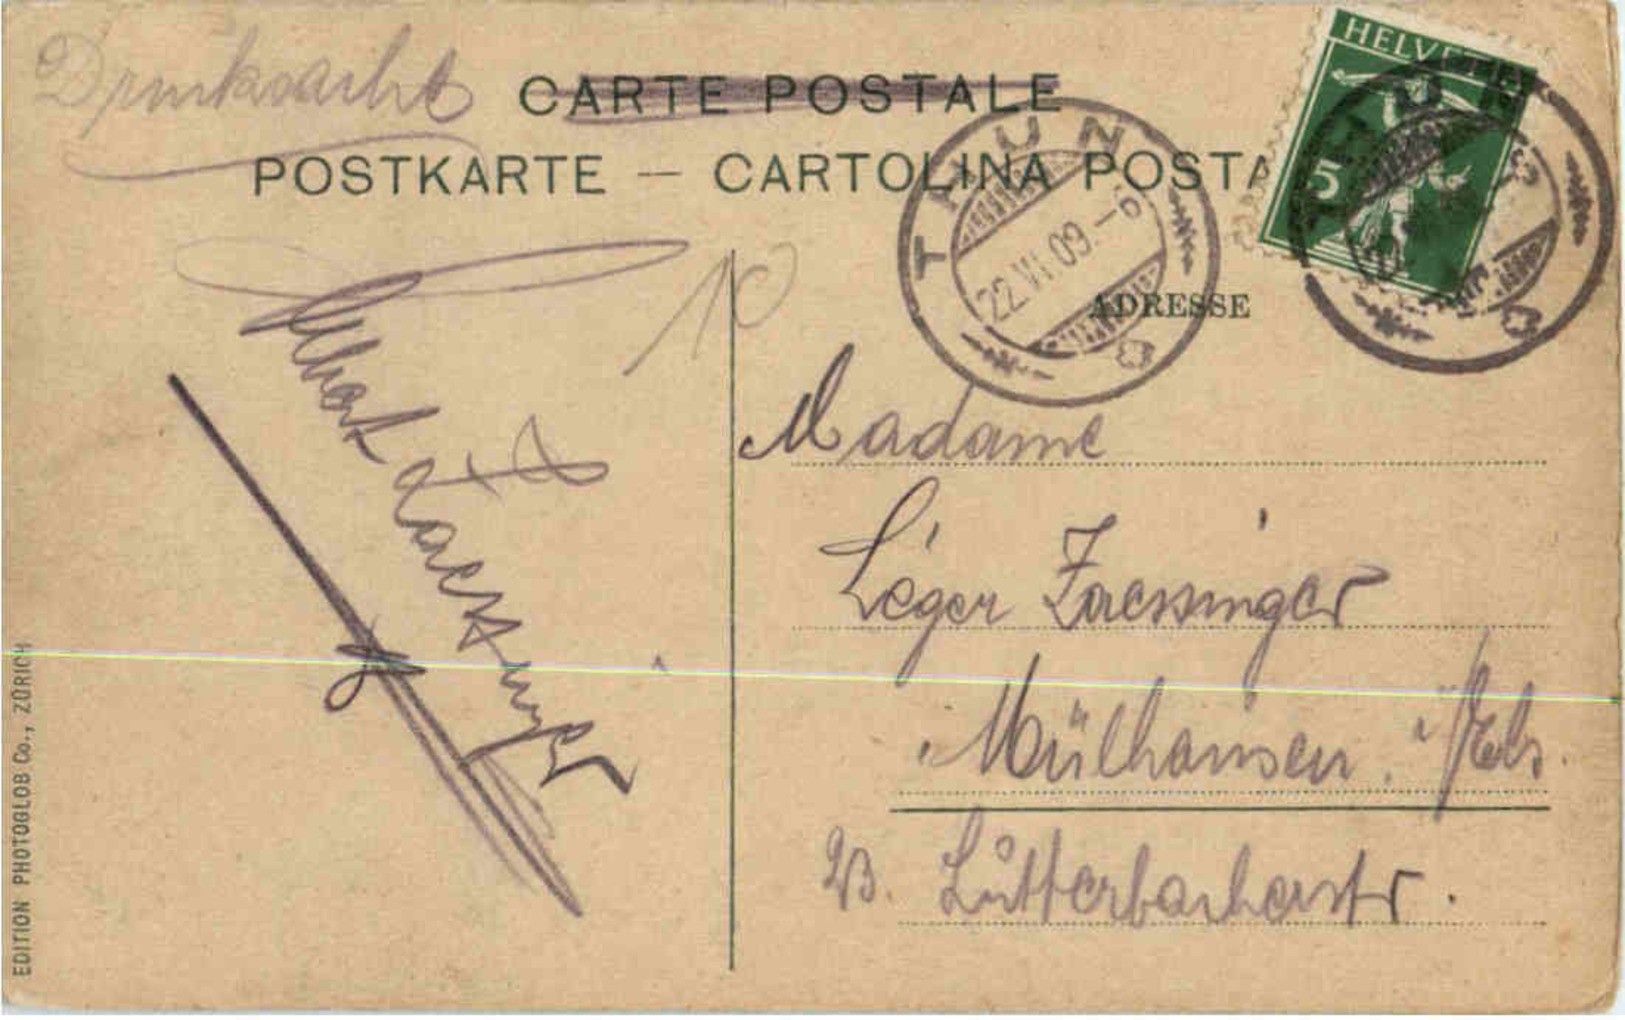 Drucksache
CARTE POSTALE
POSTKARTE — CARTOLINA POSTA
HELVETIA
5
THUN
22.VI.09.–6
ADRESSE
10
Madame
Léger Zaessinger
Mülhausen. i/Els.
23. Lutterbacherstr.
Zaessinger
EDITION PHOTOGLOB Co., ZÜRICH